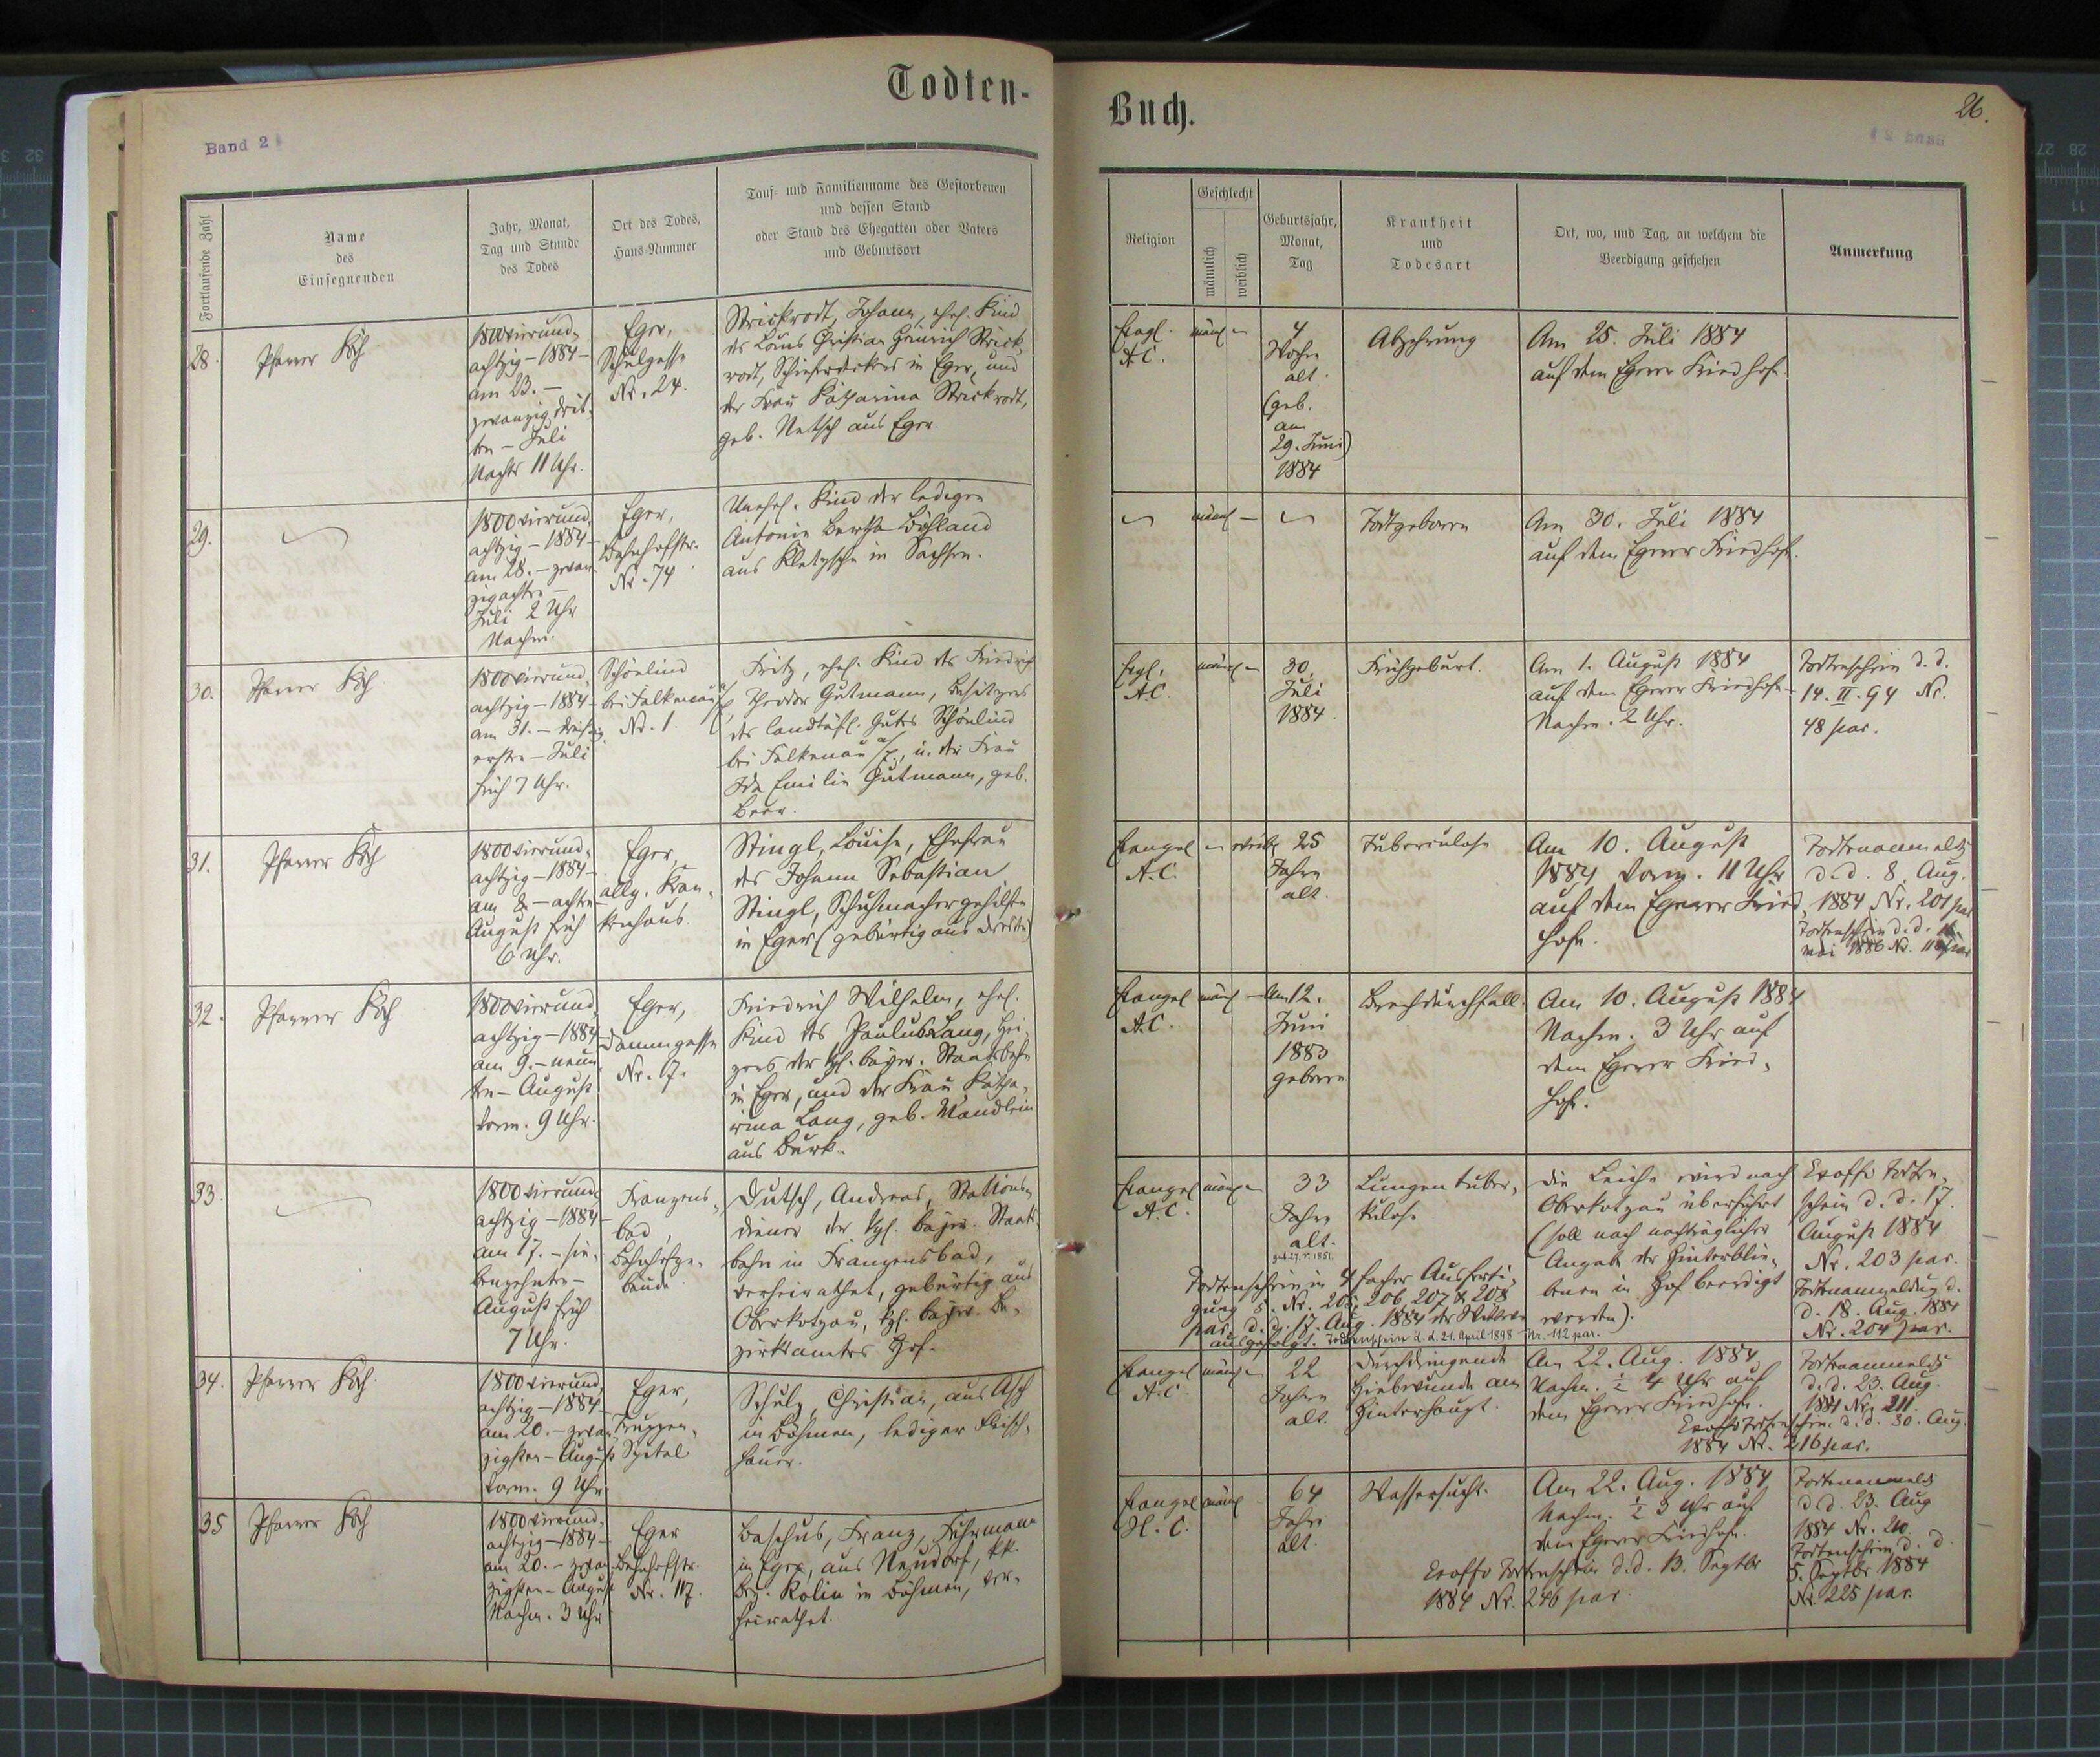 Todten-
Band 2
Fortlaufende Zahl
Name
des
Einsegnenden
Jahr, Monat,
Tag und Stunde
des Todes
Ort des Todes,
Haus-Nummer
Tauf- und Familienname des Gestorbenen
und dessen Stand
oder Stand des Ehegatten oder Vaters
und Geburtsort
28.
Pfarrer Koch
1800vierund-
achtzig - 1884 -
am 23. -
zwanzigdrit-
ten - Juli
Nachts 11 Uhr.
Eger,
Schulgasse
Nr. 24.
Strickrodt, Johann, ehel. Kind
des Louis Christian Heinrich Strick-
rodt, Schieferdeckers in Eger, und
der Frau Katharina Strickrodt,
geb. Netsch aus Eger.
29.
1800vierund-
achtzig - 1884 -
am 28. - zwan-
zigachten -
Juli 2 Uhr
Nachm.
Eger,
Bahnhofstr.
Nr. 74
Unehel. Kind der ledigen
Antonie Bertha Böhland
aus Kletzsche in Sachsen.
30.
Pfarrer Koch
1800vierund-
achtzig - 1884 -
am 31. - dreißig-
ersten - Juli
früh 7 Uhr.
Schönlind
bei Falkenau a/E,
Nr. 1.
Fritz, ehel. Kind des Friedrich
Theodor Gutmann, Besitzers
des landtäfl. Gutes Schönlind
bei Falkenau a/E, u. der Frau
Ida Emilie Gutmann, geb.
Beer.
31.
Pfarrer Koch
1800vierund-
achtzig - 1884 -
am 8. - achten
August früh
6 Uhr.
Eger,
allg. Kran-
kenhaus.
Stingl, Louise, Ehefrau
des Johann Sebastian
Stingl, Schuhmachergehilfe
in Eger (gebürtig aus Dresden)
32.
Pfarrer Koch
1800vierund-
achtzig - 1884
am 9. - neun-
ten - August
Vorm. 9 Uhr.
Eger,
Dammgasse
Nr. 7.
Friedrich Wilhelm, ehel.
Kind des Paulus Lang, Hei-
zers der kgl. bayer. Staatsbahn
in Eger, und der Frau Katha-
rina Lang, geb. Mändlein
aus Burk.
33.
1800vierund-
achtzig - 1884 -
am 17. - sie-
benzehnten -
August früh
7 Uhr.
Franzens-
bad,
Bahnhofge-
bäude.
Dutsch, Andreas, Stations-
diener der kgl. bayer. Staats-
bahn in Franzensbad,
verheirathet, gebürtig aus
Oberkotzau, kgl. bayer. Be-
zirksamtes Hof.
34.
Pfarrer Koch
1800vierund-
achtzig - 1884 -
am 20. - zwan-
zigsten - August
Vorm. 9 Uhr.
Eger,
Truppen-
Spital
Schulz, Christian, aus Asch
in Böhmen, lediger Fleisch-
hauer.
35
Pfarrer Koch
1800vierund-
achtzig - 1884 -
am 20. - zwan-
zigsten - August
Nachm. 3 Uhr
Eger
Bahnhofstr.
Nr. 117.
Baschus, Franz, Fuhrmann
in Eger, aus Neudorf, kk.
Bez. Kolin in Böhmen, ver-
heirathet.
Buch.
26.
Religion
Geschlecht
männlich
weiblich
Geburtsjahr,
Monat,
Tag
Krankheit
und
Todesart
Ort, wo, und Tag, an welchem die
Beerdigung geschehen
Anmerkung
Evgl.
A.C.
männl -
4
Wochen
alt.
(geb.
am
29. Juni)
1884
Abzehrung
Am 25. Juli 1884
auf dem Egerer Friedhofe.
männl -
Todtgeboren
Am 30. Juli 1884
auf dem Egerer Friedhofe.
Evgl.
A.C.
männl -
30.
Juli
1884
Frühgeburt.
Am 1. August 1884
auf dem Egerer Friedhofe
Nachm. 2 Uhr.
Todtenschein d. d.
14. II. 94 Nr.
48 par.
Evangel
A.C.
- weibl
25
Jahre
alt.
Tuberculose
Am 10. August
1884 Vorm. 11 Uhr
auf dem Egerer Fried-
hofe.
Todtenanmeldg
d. d. 8. Aug.
1884 Nr. 201 par
Todtenschein d. d.
Mai 1886 Nr.
Evangel
A.C.
männl -
Am 12.
Juni
1883
geboren
Brechdurchfall.
Am 10. August 1884
Nachm. 3 Uhr auf
dem Egerer Fried-
hofe.
Evangel
A.C.
männl -
33
Jahre
alt.
geb. 27. V. 1851.
Lungentuber-
kulose
Die Leiche wird nach
Oberkotzau überführt
(soll nach nachträglicher
Angabe der Hinterblie-
benen in Hof beerdigt
werden).
Exoffo Todten-
schein d. d. 17.
August 1884
Nr. 203 par.
Todtenanmeldung d.
d. 18. Aug. 1884
Nr. 204 par.
Todtenschein in 4 facher Ausferti-
gung s. Nr. 205, 206, 207 & 208
par. d. d. 17. Aug. 1884 der Witwe
ausgefolgt. Todtenschein d. d. 21. April 1898 Nr. 112 par.
Evangel
A.C.
männl -
22
Jahre
alt.
Durchdringende
Hiebwunde am
Hinterhaupt.
Am 22. Aug. 1884
Nachm. ½ 4 Uhr auf
dem Egerer Friedhofe.
Todtenanmeldg
d. d. 23. Aug.
1884 Nr. 211
Exoffo Todtenschein d. d. 30. Aug.
1884 Nr. 216 par.
Evangel
H. C.
männl
64
Jahre
alt.
Wassersucht.
Am 22. Aug. 1884
Nachm. ½ 3 Uhr auf
dem Egerer Friedhofe.
Todtenanmeldg
d. d. 23. Aug
1884 Nr. 210.
Todtenschein d. d.
5. Septbr 1884
Nr. 225 par.
Exoffo Todtenschein d. d. 13. Septbr
1884 Nr. 246 par.